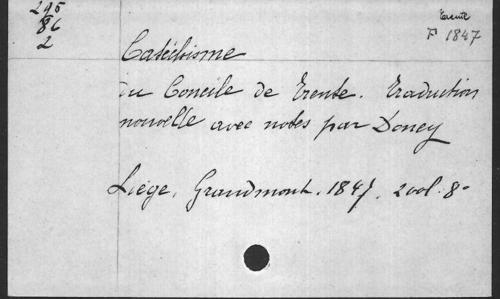 295
86
2
Trente
F 1847
Catéchisme
du Concile de Trente. Traduction
nouvelle avec notes par Doney
Liége, Grandmont. 1847. 2 vol. 8°